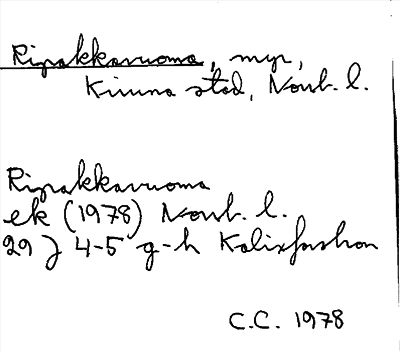 Ripakkavuoma, myr,
Kiruna stad, Norrb. l.
Ripakkavuoma
ek (1978) Norrb. l.
29 J 4-5 g-h Kalixforsbron
C.C. 1978